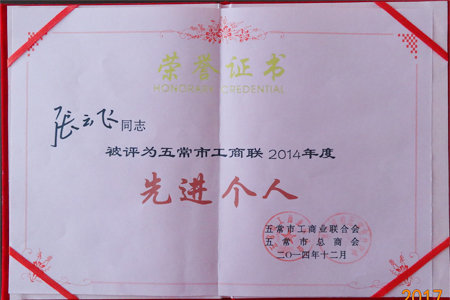 荣誉证书
HONORARY CREDENTIAL
張云飞同志
被评为五常市工商联2014年度
先进个人
五常市工商业联合会
五常市总商会
二〇一四年十二月
2017